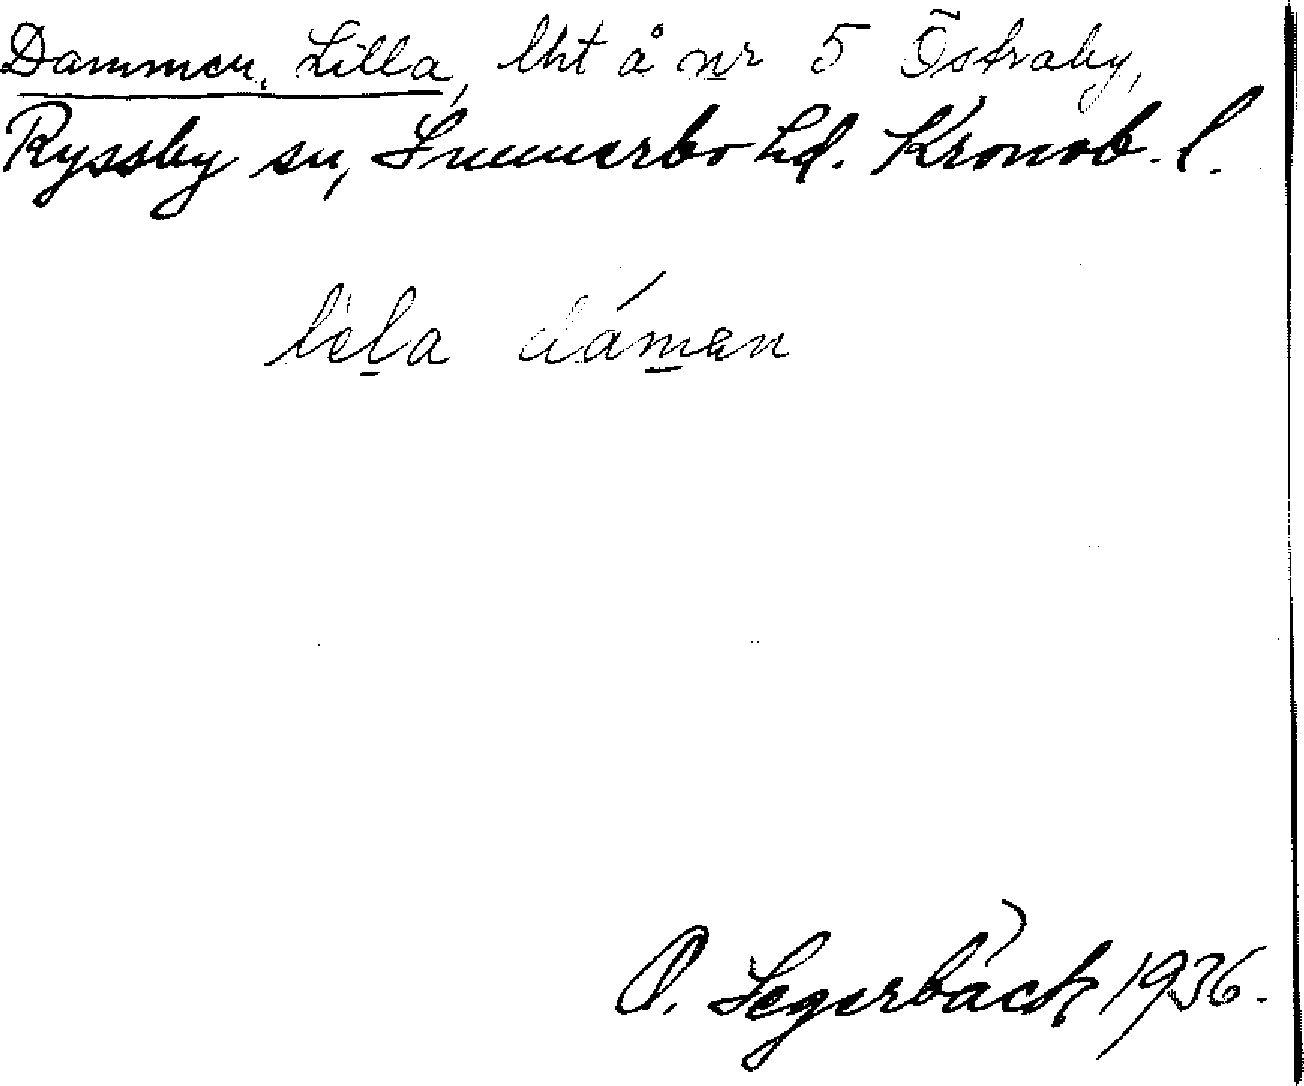 Dammen, Lilla, lht å nr 5 Östraby,
Ryssby sn, Sunnerbo hd. Kronob. l.
lìl̲a dám̲ən
P. Segerbäck 1936.